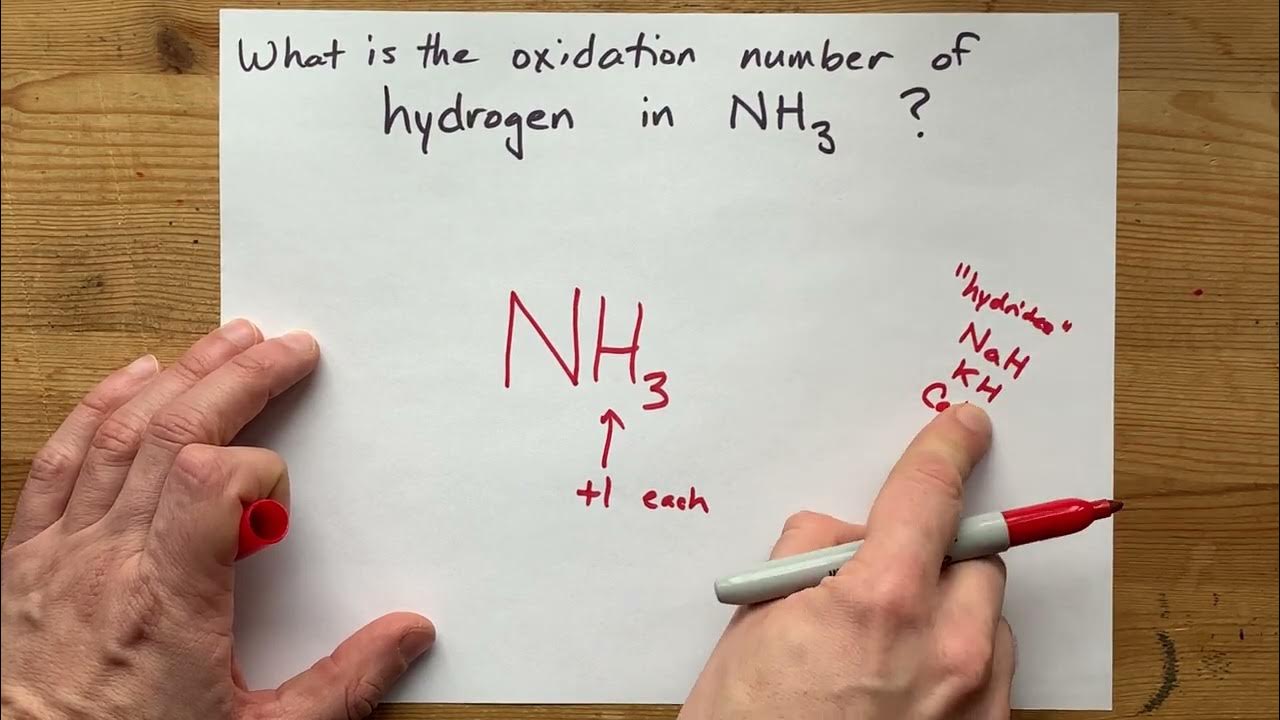 What is the oxidation number of
hydrogen in NH₃ ?
NH₃
+1 each
"hydrides"
NaH
KH